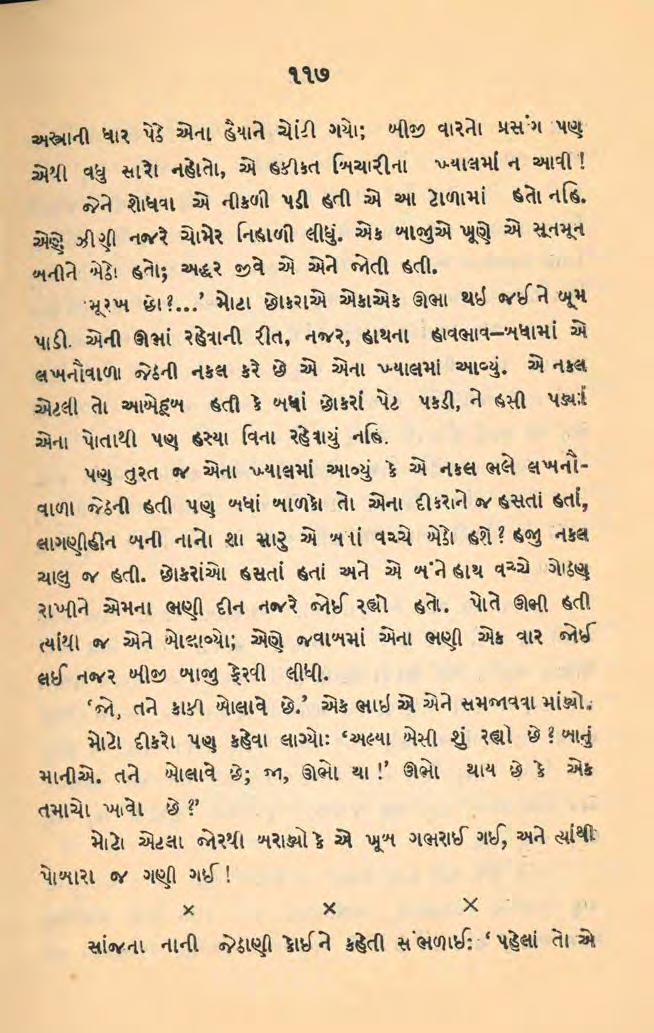 ૧૧૭
અસ્ત્રાની ધાર પેઠે એના હૈયાને ચોંટી ગયો; બીજી વારનો પ્રસંગ પણ
એથી વધુ સારો નહોતો, એ હકીકત બિચારીના ખ્યાલમાં ન આવી !
જેને શોધવા એ નીકળી પડી હતી એ આ ટોળામાં હતો નહિ.
એણે ઝીણી નજરે ચોમેર નિહાળી લીધું. એક બાજુએ ખૂણે એ સૂનમૂન
બનીને બેઠો હતો; અદ્ધર જીવે એ એને જોતી હતી.
‘મૂરખ છો?...’ મોટા છોકરાએ એકાએક ઊભા થઇ જઈને બૂમ
પાડી. એની ઊભાં રહેવાની રીત, નજર, હાથના હાવભાવ—બધામાં એ
લખનૌવાળા જેઠની નકલ કરે છે એ એના ખ્યાલમાં આવ્યું. એ નકલ
એટલી તો આબેહૂબ હતી કે બધાં છોકરાં પેટ પકડી, ને હસી પડ્યાં
એના પોતાથી પણ હસ્યા વિના રહેવાયું નહિ.
પણ તુરત જ એના ખ્યાલમાં આવ્યું કે એ નકલ ભલે લખનૌ-
વાળા જેઠની હતી પણ બધાં બાળકો તો એના દીકરાને જ હસતાં હતાં,
લાગણીહીન બની નાનો શા સારુ એ બધાં વચ્ચે બેઠો હશે ? હજુ નકલ
ચાલુ જ હતી. છોકરાંઓ હસતાં હતાં અને એ બંને હાથ વચ્ચે ગોઠણ
રાખીને એમના ભણી દીન નજરે જોઈ રહ્યો હતો. પોતે ઊભી હતી
ત્યાંથી જ એને બોલાવ્યો; એણે જવાબમાં એના ભણી એક વાર જોઈ
લઈ નજર બીજી બાજુ ફેરવી લીધી.
‘જો, તને કાકી બોલાવે છે.’ એક ભાઇ એ એને સમજાવવા માંડ્યો.
મોટો દીકરો પણ કહેવા લાગ્યો: ‘અલ્યા બેસી શું રહ્યો છે ? બાનું
માનીએ. તને બોલાવે છે; જા, ઊભો થા !’ ઊભો થાય છે કે એક
તમાચો ખાવો છે ?’
મોટો એટલા જોરથી બરાડ્યો કે એ ખૂબ ગભરાઈ ગઈ, અને ત્યાંથી
પોબારા જ ગણી ગઈ !
× × ×
સાંજના નાની જેઠાણી કોઈને કહેતી સંભળાઈ: ‘પહેલાં તો એ